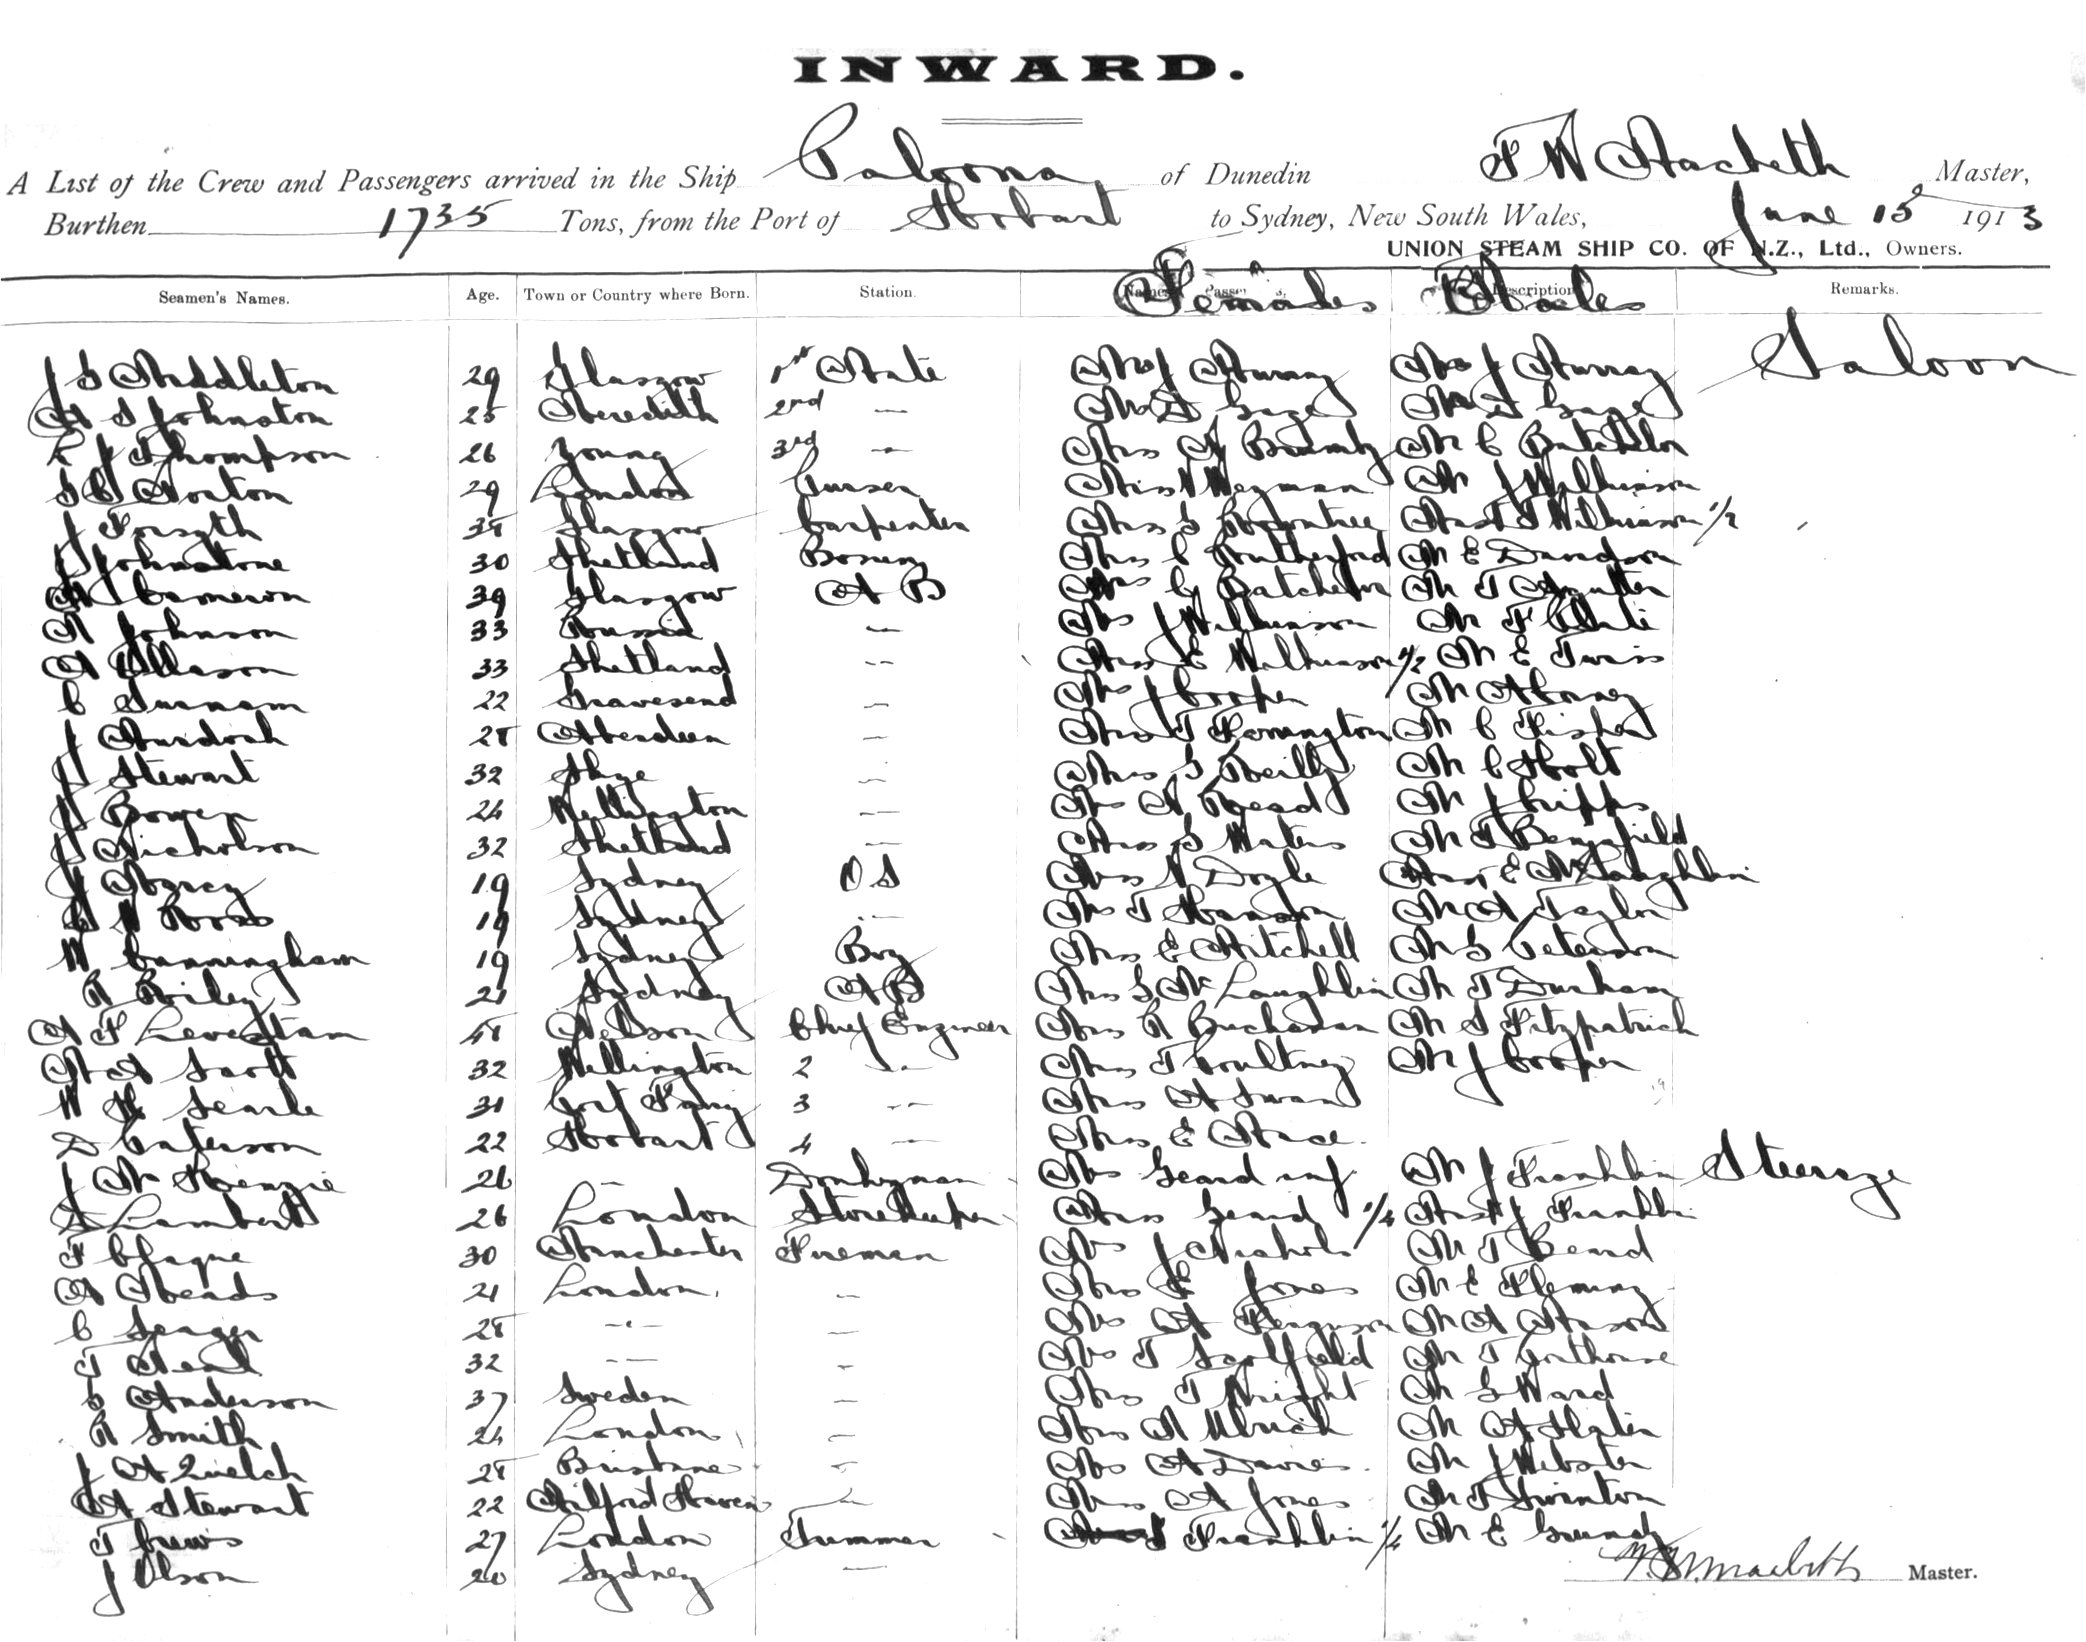 INWARD.
A List of the Crew and Passengers arrived in the Ship Paloona of Dunedin F W Macbeth Master,
Burthen 1735 Tons, from the Port of Hobart to Sydney, New South Wales, June 15 1913
UNION STEAM SHIP CO. OF N.Z., Ltd., Owners.
Seamen's Names. Age. Town or Country where Born. Station. Females Males Remarks.
J S Middleton 29 Glasgow 1st Mate Mrs J Murray Mr J Murray Saloon
A S Johnston 25 Meredith 2nd — Gaze Gaze
Thompson 26 Young 3rd — Mrs A Mr C Batchelor
Norton 29 London Purser Miss Wegman Mr J Wilkinson
J Forsyth 38 Glasgow Carpenter Mrs G Rowntree Mast T Wilkinson 1/2
J Johnstone 30 Shetland Bosun Mrs C Rutherford Mr E Davidson
A Cameron 39 Glasgow A B Mrs C Batchelor Mr T
A Johnson 33 Russia — Mrs J Wilkinson Mr F
A Ollason 33 Shetland -- Miss E Wilkinson 1/2 Mr E Twiss
C 22 Gravesend — Mrs J Cooper Mr
J Murdoch 28 Aberdeen — Mrs T Mr C Fisher
J Stewart 32 Skye — Mrs G Reilly Mr C Holt
J Bower 24 Wellington — Mrs A Read Mr J Cripps
J Nicholson 32 Shetland — Mrs G Waters Mr T
J 19 Sydney O S Mrs Doyle Mast E McLaughlin
W Ross 19 Sydney — Mrs T Hanson Mr A Taylor
W Cunningham 19 Sydney Boy Mrs E Mitchell Mr G Peterson
R Riley 21 Sydney A B Mrs G McLaughlin Mr T Durham
A F Levestam 48 Nelson Chief Engineer Mrs R Buchanan Mr S Fitzpatrick
A Scott 32 Wellington 2 — Mrs T Poultney Mr J Cooper
W H Searle 31 3 -- Mrs A Swan
D Paterson 22 Hobart 4 — Mrs E
J McKenzie 26 — Donkeyman Mrs Geard inf Mr J Franklin Steerage
Lambert 26 London Storekeeper Miss Geard 1/4 Mast J Franklin
F Clague 30 Manchester Fireman Mrs J Nichols Mr T Beard
A Meads 21 London — Mrs E Jones Mr E Fleming
C 28 -- — Mrs A Ferguson Mr A Mason
T Neal 32 -- — Mrs T Scolfield Mr T
C Anderson 37 Sweden — Mrs T Wright Mr G Ward
R Smith 24 London — Mrs A Ulrich Mr A Slater
J A Quelch 28 Brisbane — Mrs A Davies Mr J Webster
A Stewart 22 Milford Haven — Mrs A Jones Mr T Swinton
T Crews 27 London Trimmer Franklin 1/4 Mr E Grundy
J Olson 20 Sydney —
F. W. Macbeth Master.